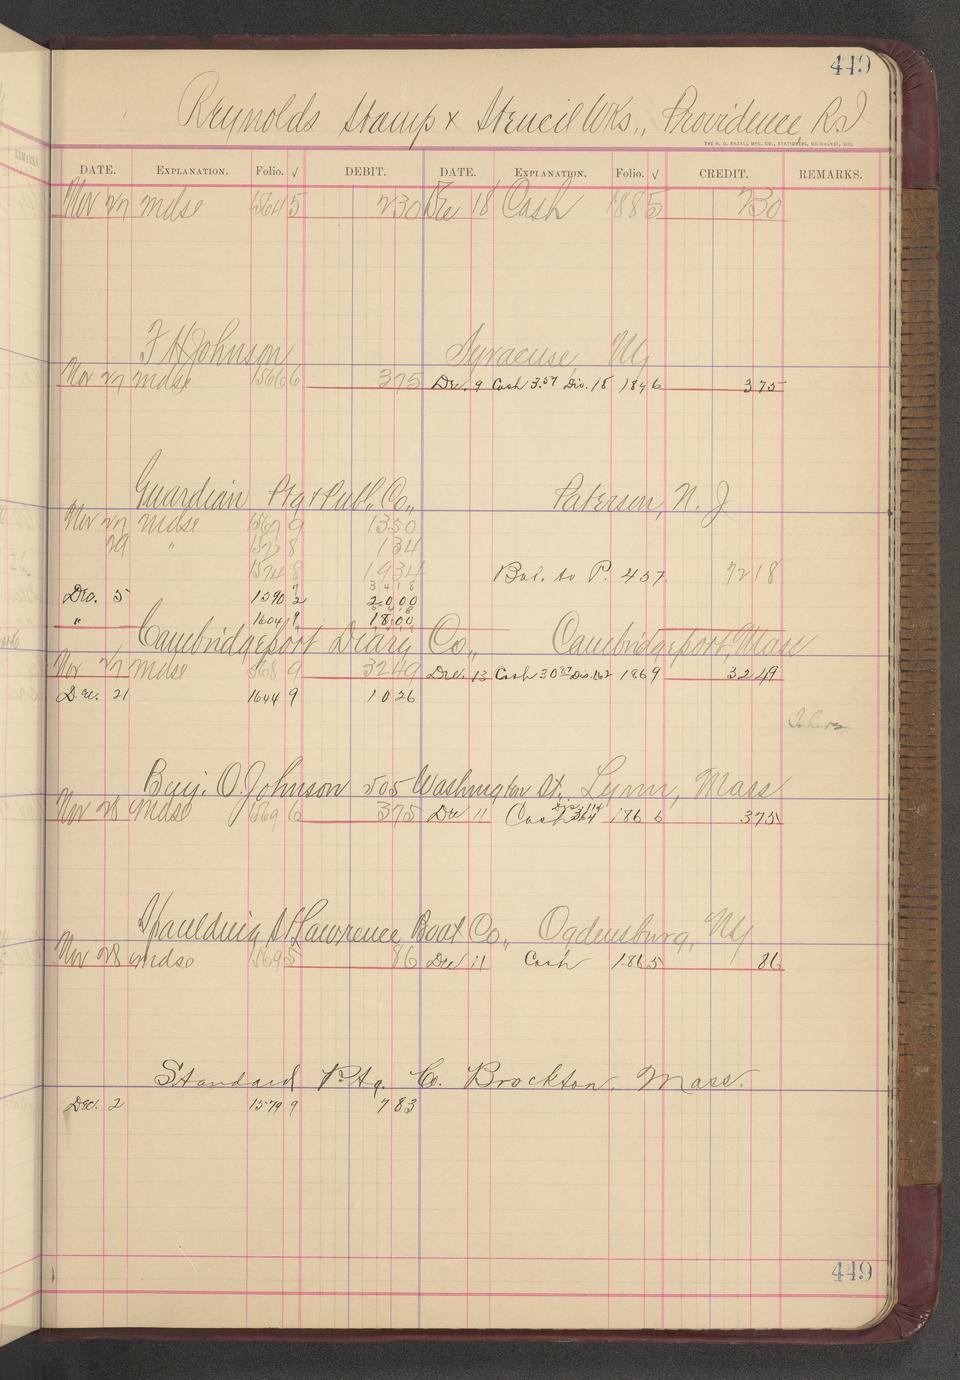 449
Reynolds Stamp & Stencil Wks., Providence R.I
THE H. G. RAZALL MFG. CO., STATIONERS, MILWAUKEE, WIS.
DATE. EXPLANATION. Folio. √ DEBIT. DATE. EXPLANATION. Folio. √ CREDIT. REMARKS.
Nov 27 mdse 1564 5 230 Dec 18 Cash 188 5 230
F H Johnson Syracuse, NY
Nov 27 mdse 1566 6 375 Dec. 9 Cash 3.57 Dis. 18 184 6 375
Guardian Ptg & Publ. Co., Paterson, N. J
Nov 27 mdse 1567 9 1350
29 " 1572 8 134
1574 8 1934 Bal. to P. 457 7218
3418
Dec. 5 1590 2 2000
" 1604 9 1800
Cambridgeport Diary Co., Cambridgeport, Mass
Nov 27 mdse 1568 9 3249 Dec. 13 Cash 30 87 Dis. 162 186 9 3249
Dec. 21 1644 9 1026
Benj. O. Johnson 505 Washington St., Lynn, Mass
Dis. 11
Nov 28 mdse 1569 6 375 Dec 11 Cash 364 186 6 375
Spaulding St Lawrence Boat Co., Ogdensburg, NY
Nov 28 mdse 1569 5 86 Dec 11 Cash 186 5 86
Standard Ptg. Co. Brockton, Mass.
Dec. 2 1579 9 783
449